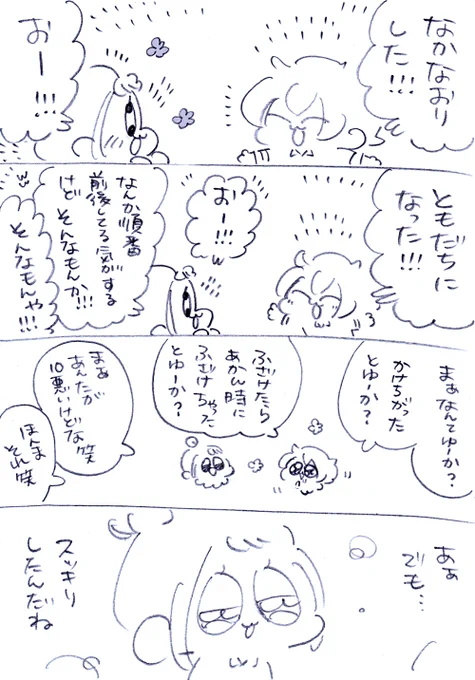 なかなおり
した!!!
おー!!!
ともだちに
なった!!!
おー!!!
w
なんか順番
前後してる気がする
けど そんなもんか!!!
そんなもんや!!!
w
まぁなんてゆーか?
かけちがった
とゆーか?
ふざけたら
あかん時に
ふざけちゃった
とゆーか?
まぁ
あんたが
10悪いけどな笑
ほんま
それ笑
あぁ
でも…
スッキリ
したんだね